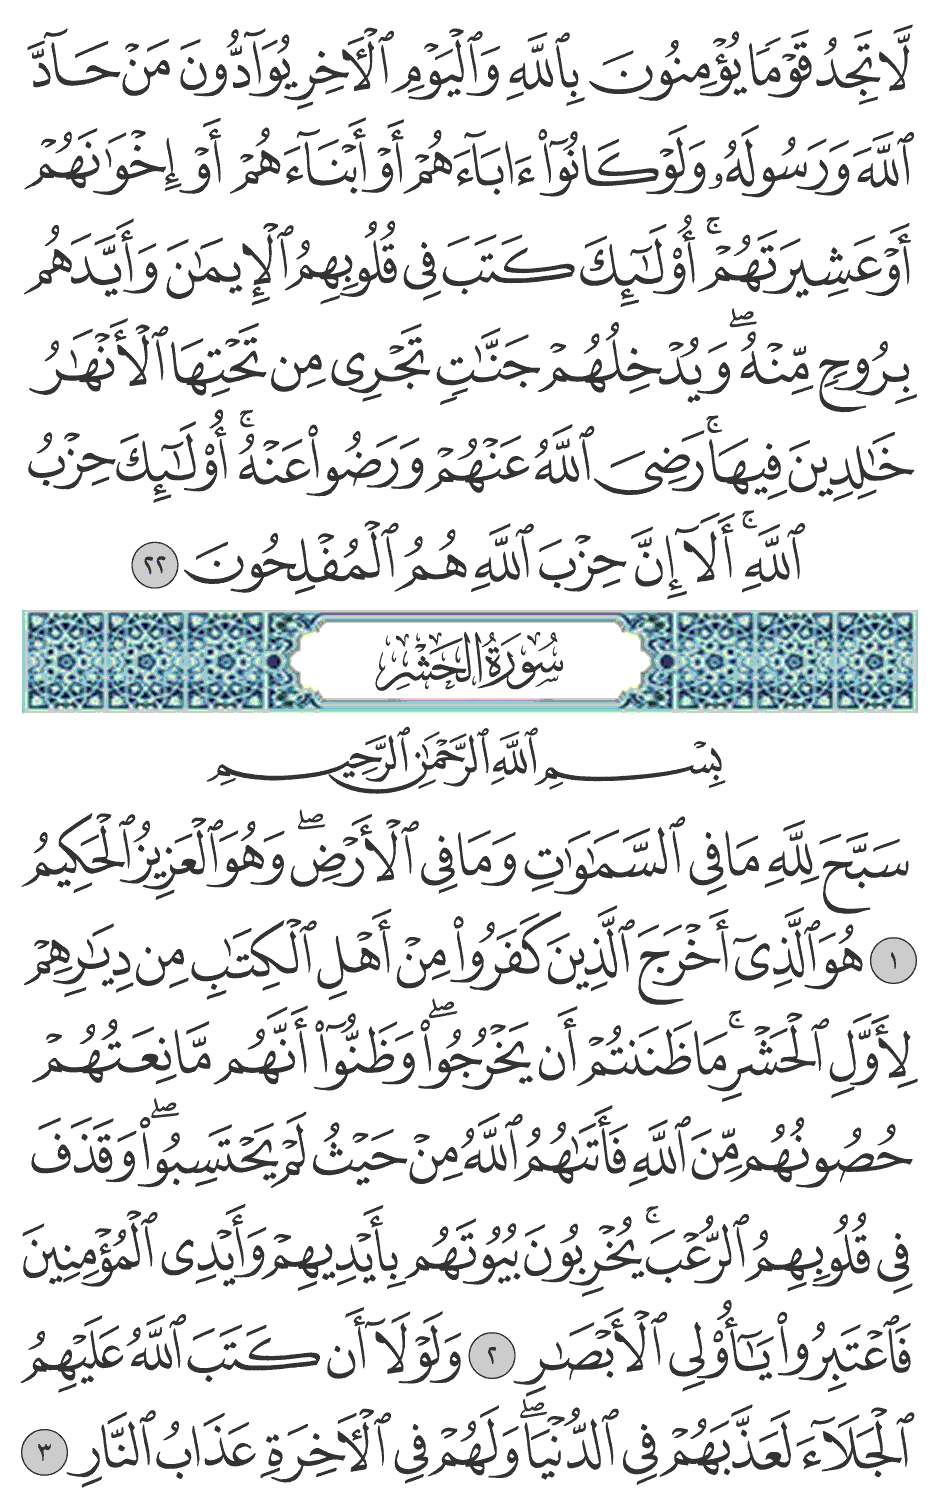 لَّا تَجِدُ قَوْمًا يُؤْمِنُونَ بِٱللَّهِ وَٱلْيَوْمِ ٱلْءَاخِرِ يُوَآدُّونَ مَنْ حَآدَّ
ٱللَّهَ وَرَسُولَهُۥ وَلَوْ كَانُوٓا۟ ءَابَآءَهُمْ أَوْ أَبْنَآءَهُمْ أَوْ إِخْوَٰنَهُمْ
أَوْ عَشِيرَتَهُمْ ۚ أُو۟لَـٰٓئِكَ كَتَبَ فِى قُلُوبِهِمُ ٱلْإِيمَـٰنَ وَأَيَّدَهُم
بِرُوحٍ مِّنْهُ ۖ وَيُدْخِلُهُمْ جَنَّـٰتٍ تَجْرِى مِن تَحْتِهَا ٱلْأَنْهَـٰرُ
خَـٰلِدِينَ فِيهَا ۚ رَضِىَ ٱللَّهُ عَنْهُمْ وَرَضُوا۟ عَنْهُ ۚ أُو۟لَـٰٓئِكَ حِزْبُ
ٱللَّهِ ۚ أَلَآ إِنَّ حِزْبَ ٱللَّهِ هُمُ ٱلْمُفْلِحُونَ ٢٢
سُورَةُ الحَشْرِ
بِسْمِ ٱللَّهِ ٱلرَّحْمَـٰنِ ٱلرَّحِيمِ
سَبَّحَ لِلَّهِ مَا فِى ٱلسَّمَـٰوَٰتِ وَمَا فِى ٱلْأَرْضِ ۖ وَهُوَ ٱلْعَزِيزُ ٱلْحَكِيمُ
١ هُوَ ٱلَّذِىٓ أَخْرَجَ ٱلَّذِينَ كَفَرُوا۟ مِنْ أَهْلِ ٱلْكِتَـٰبِ مِن دِيَـٰرِهِمْ
لِأَوَّلِ ٱلْحَشْرِ ۚ مَا ظَنَنتُمْ أَن يَخْرُجُوا۟ ۖ وَظَنُّوٓا۟ أَنَّهُم مَّانِعَتُهُمْ
حُصُونُهُم مِّنَ ٱللَّهِ فَأَتَىٰهُمُ ٱللَّهُ مِنْ حَيْثُ لَمْ يَحْتَسِبُوا۟ ۖ وَقَذَفَ
فِى قُلُوبِهِمُ ٱلرُّعْبَ ۚ يُخْرِبُونَ بُيُوتَهُم بِأَيْدِيهِمْ وَأَيْدِى ٱلْمُؤْمِنِينَ
فَٱعْتَبِرُوا۟ يَـٰٓأُو۟لِى ٱلْأَبْصَـٰرِ ٢ وَلَوْلَآ أَن كَتَبَ ٱللَّهُ عَلَيْهِمُ
ٱلْجَلَآءَ لَعَذَّبَهُمْ فِى ٱلدُّنْيَا ۖ وَلَهُمْ فِى ٱلْءَاخِرَةِ عَذَابُ ٱلنَّارِ ٣